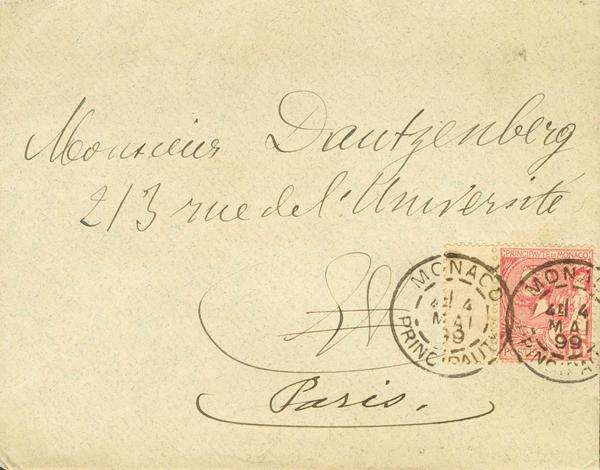 Monsieur Dautzenberg
213 rue de l'Université
Paris.
PRINCIPAUTE DE MONACO
MONACO
4 MAI 99
PRINCIPAUTE
MONACO
4 MAI 99